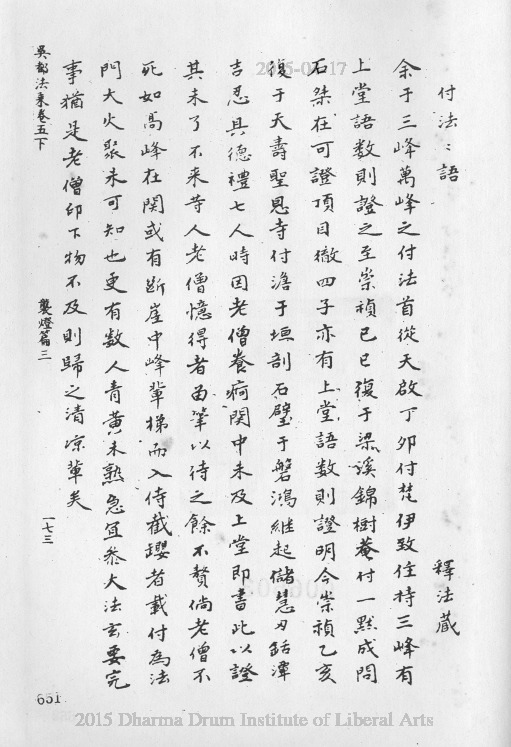 付法法語
釋法藏
余于三峰萬峰之付法首從天啟丁卯付梵伊致住持三峰有
上堂語数則證之至崇禎己巳復于梁溪錦樹菴付一默成問
石乘在可證頂目徹四子亦有上堂語数則證明今崇禎乙亥
復于天壽聖恩寺付澹于垣剖石璧于磐鴻繼起儲慧刃銛潭
吉忍具德禮七人時因老僧養痾関中未及上堂即書此以證
其未了不来䓁人老僧憶得者由筆以待之餘不贅倘老僧不
死如高峰在関或有断崖中峰輩梯而入侍截蹑者載付為法
門大火聚未可知也更有数人青黄未熟急宜叅大法玄要完
事猶是老僧印下物不及則歸之清凉輩矣
吳都法乘卷五下
襲燈篇三
一七三
651
2015 Dharma Drum Institute of Liberal Arts